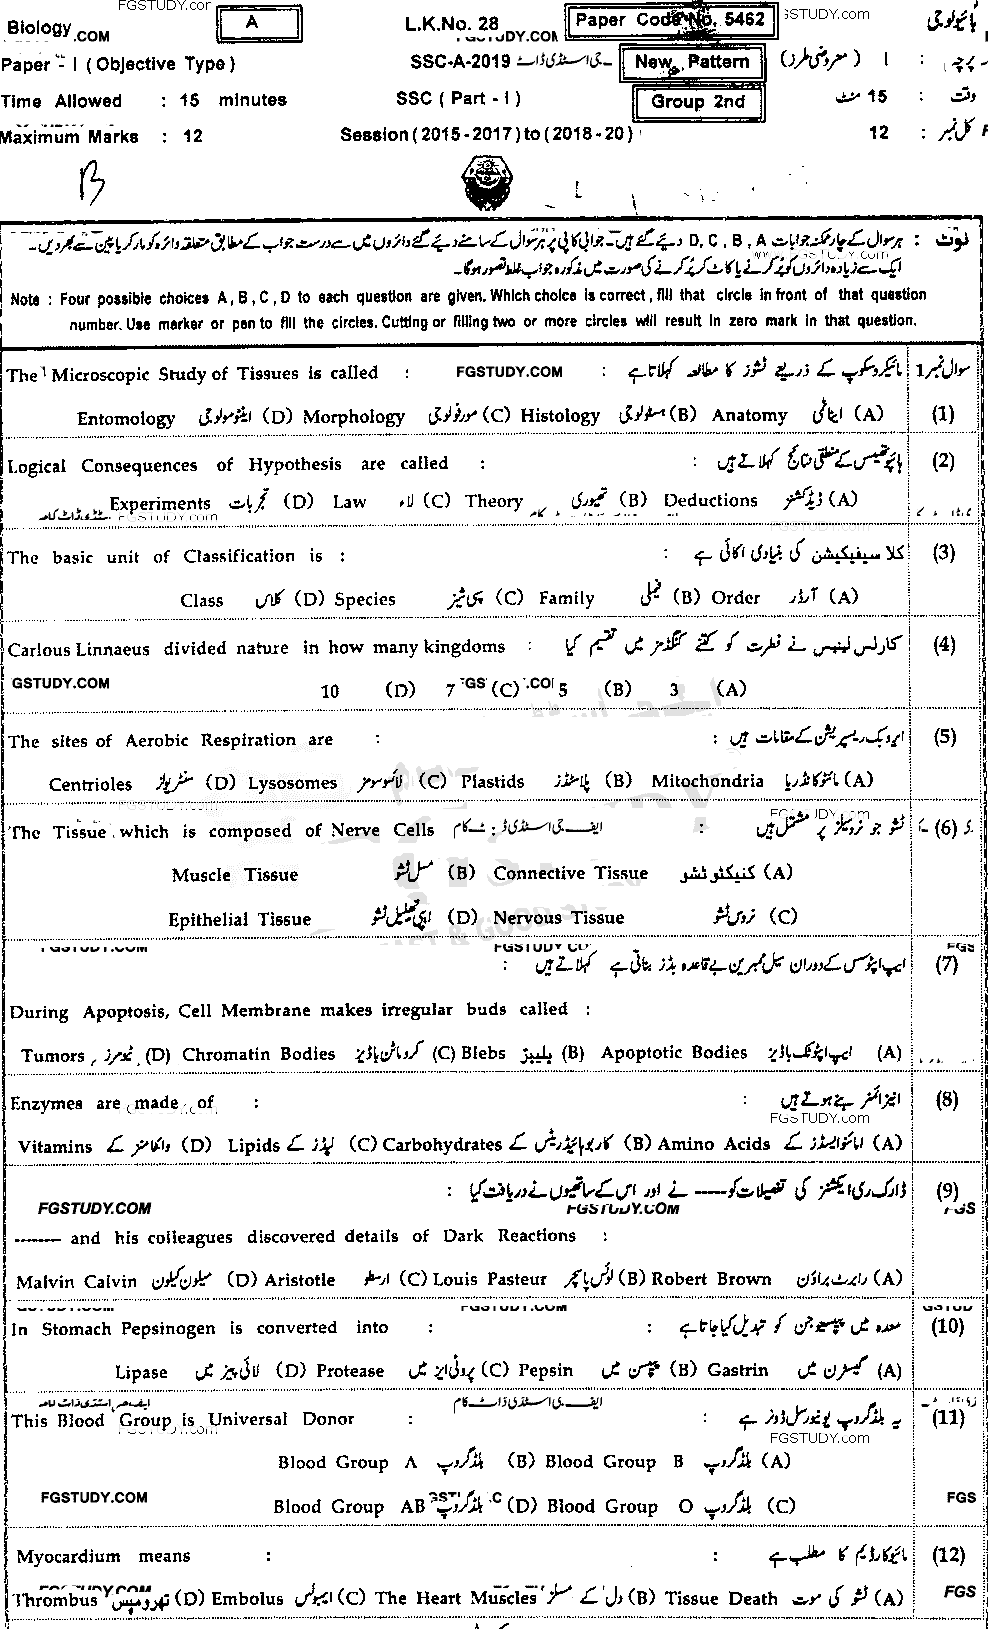 FGSTUDY.cor
Biology .COM
A
L.K.No. 28
FGSTUDY.COM
Paper Code No. 5462
GSTUDY.COM
بائیولوجی
Paper - I ( Objective Type )
SSC-A-2019
New Pattern
پرچہ : I ( معروضی طرز )
Time Allowed : 15 minutes
SSC ( Part - I )
Group 2nd
وقت : 15 منٹ
Maximum Marks : 12
Session ( 2015 - 2017 ) to ( 2018 - 20 )
کل نمبر : 12
B
نوٹ : ہر سوال کے چار ممکنہ جوابات D , C , B , A دیے گئے ہیں۔ جوابی کاپی پر ہر سوال کے سامنے دیے گئے دائروں میں سے درست جواب کے مطابق متعلقہ دائرہ کو مارکر یا پین سے بھر دیں۔
ایک سے زیادہ دائروں کو پُر کرنے یا کاٹ کر پُر کرنے کی صورت میں مذکورہ جواب غلط تصور ہوگا۔
Note : Four possible choices A , B , C , D to each question are given. Which choice is correct , fill that circle in front of that question
number. Use marker or pen to fill the circles. Cutting or filling two or more circles will result in zero mark in that question.
The Microscopic Study of Tissues is called : FGSTUDY.COM : مائیکروسکوپ کے ذریعے ٹشوز کا مطالعہ کہلاتا ہے سوال نمبر 1
Entomology اینٹومولوجی (D) Morphology مورفولوجی (C) Histology ہسٹولوجی (B) Anatomy اناٹمی (A) (1)
Logical Consequences of Hypothesis are called : : ہائپوتھیسس کے منطقی نتائج کہلاتے ہیں (2)
Experiments تجربات (D) Law لاء (C) Theory تھیوری (B) Deductions ڈیڈکشنز (A)
FGSTUDY.com
The basic unit of Classification is : : کلاسیفیکیشن کی بنیادی اکائی ہے (3)
Class کلاس (D) Species سپی شیز (C) Family فیملی (B) Order آرڈر (A)
Carlous Linnaeus divided nature in how many kingdoms : کارلس لینیس نے فطرت کو کتنے کنگڈمز میں تقسیم کیا (4)
GSTUDY.COM 10 (D) 7 (C) 5 (B) 3 (A)
The sites of Aerobic Respiration are : : ایروبک ریسپریشن کے مقامات ہیں (5)
Centrioles سنٹریولز (D) Lysosomes لائسوسومز (C) Plastids پلاسٹڈز (B) Mitochondria مائٹوکانڈریا (A)
The Tissue which is composed of Nerve Cells ایف جی اسٹڈی ڈاٹ کام : ٹشو جو نرو سیلز پر مشتمل ہیں (6)
Muscle Tissue مسل ٹشو (B) Connective Tissue کنیکٹو ٹشو (A)
Epithelial Tissue اپی تھیلیل ٹشو (D) Nervous Tissue نروس ٹشو (C)
FGSTUDY.COM
: ایپاپٹوسس کے دوران سیل ممبرین بے قاعدہ بڈز بناتی ہے کہلاتے ہیں (7)
During Apoptosis, Cell Membrane makes irregular buds called :
Tumors ٹیومرز (D) Chromatin Bodies کروماٹن باڈیز (C) Blebs بلیبز (B) Apoptotic Bodies ایپاپٹوٹک باڈیز (A)
Enzymes are made of : : انزائمز بنے ہوتے ہیں (8)
FGSTUDY.com
Vitamins وٹامنز کے (D) Lipids لپڈز کے (C) Carbohydrates کاربوہائیڈریٹس کے (B) Amino Acids امائنو ایسڈز کے (A)
: ڈارک ری ایکشنز کی تفصیلات کو ----- نے اور اس کے ساتھیوں نے دریافت کیا (9)
FGSTUDY.COM FGSTUDY.COM FGS
------- and his colleagues discovered details of Dark Reactions :
Malvin Calvin میلون کیلون (D) Aristotle ارسطو (C) Louis Pasteur لوئس پاسچر (B) Robert Brown رابرٹ براؤن (A)
GSTUDY.COM FGSTUDY.COM GSTUD
In Stomach Pepsinogen is converted into : : معدہ میں پیپسینوجن کو تبدیل کیا جاتا ہے (10)
Lipase لائی پیز میں (D) Protease پروٹی ایز میں (C) Pepsin پیپسن میں (B) Gastrin گیسٹرن میں (A)
ایف جی اسٹڈی ڈاٹ کام
This Blood Group is Universal Donor : : یہ بلڈ گروپ یونیورسل ڈونر ہے (11)
FGSTUDY.com
Blood Group A بلڈ گروپ (B) Blood Group B بلڈ گروپ (A)
FGSTUDY.COM Blood Group AB بلڈ گروپ (D) Blood Group O بلڈ گروپ (C) FGS
Myocardium means : : مائیوکارڈیم کا مطلب ہے (12)
FGSTUDY.COM FGS
Thrombus تھرومبس (D) Embolus ایمبولس (C) The Heart Muscles دل کے مسلز (B) Tissue Death ٹشو کی موت (A)